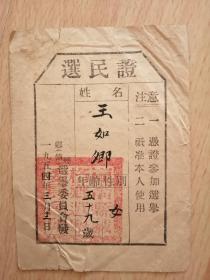 選民證
注意
一 憑證參加選舉
二 祇准本人使用
姓名
王如卿
性別 女
年齡 五十九歲
選舉委員會發
一九五四年三月三日